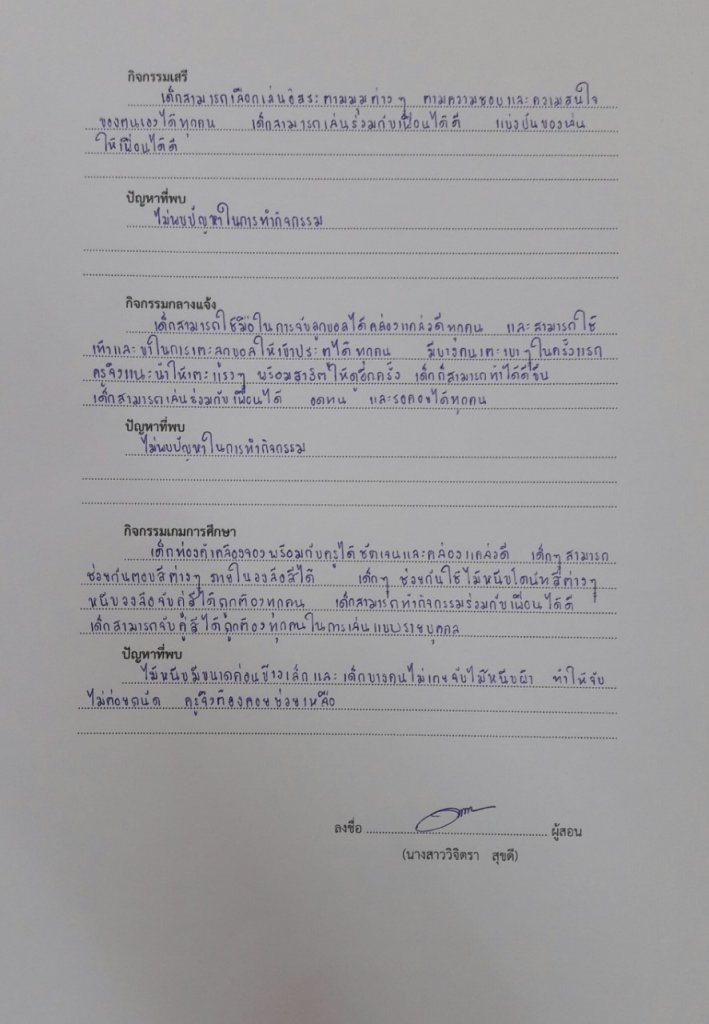 กิจกรรมเสรี
เด็กสามารถเลือกเล่นอิสระตามมุมต่างๆ ตามความชอบและความสนใจ
ของตนเองได้ทุกคน เด็กสามารถเล่นร่วมกับเพื่อนได้ดี แบ่งปันของเล่น
ให้เพื่อนได้ดี
ปัญหาที่พบ
ไม่พบปัญหาในการทำกิจกรรม
กิจกรรมกลางแจ้ง
เด็กสามารถใช้มือในการจับลูกบอลได้คล่องแคล่วดีทุกคน และสามารถใช้
เท้าและขาในการเตะลูกบอลให้เข้าประตูได้ทุกคน มีบางคนเตะเบาๆในครั้งแรก
ครูจึงแนะนำให้เตะแรงๆ พร้อมสาธิตให้ดูอีกครั้ง เด็กก็สามารถทำได้ดีขึ้น
เด็กสามารถเล่นร่วมกับเพื่อนได้ อดทน และรอคอยได้ทุกคน
ปัญหาที่พบ
ไม่พบปัญหาในการทำกิจกรรม
กิจกรรมเกมการศึกษา
เด็กท่องคำคล้องจองพร้อมกับครูได้ชัดเจนและคล่องแคล่วดี เด็กๆสามารถ
ช่วยกันตอบสีต่างๆ ภายในวงล้อสีได้ เด็กๆ ช่วยกันใช้ไม้หนีบโดนัทสีต่างๆ
หนีบวงล้อจับคู่สีได้ถูกต้องทุกคน เด็กสามารถทำกิจกรรมร่วมกับเพื่อนได้ดี
เด็กสามารถจับคู่สีได้ถูกต้องทุกคนในการเล่นแบบรายบุคคล
ปัญหาที่พบ
ไม้หนีบมีขนาดค่อนข้างเล็กและเด็กบางคนไม่เคยจับไม้หนีบผ้า ทำให้จับ
ไม่ค่อยถนัด ครูจึงต้องคอยช่วยเหลือ
ลงชื่อ ผู้สอน
(นางสาววิจิตรา สุขดี)